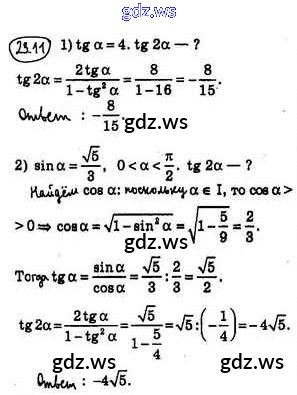 gdz.ws
29.11 1) tg α = 4. tg 2α — ?
tg 2α = 2tg α / (1 − tg² α) = 8 / (1 − 16) = − 8/15.
Ответ: − 8/15.
gdz.ws
gdz.ws
2) sin α = √5/3, 0 < α < π/2. tg 2α — ?
Найдём cos α: поскольку α ∈ I, то cos α >
> 0 ⇒ cos α = √(1 − sin² α) = √(1 − 5/9) = 2/3.
gdz.ws
gdz.ws
Тогда tg α = sin α / cos α = √5/3 : 2/3 = √5/2.
tg 2α = 2tg α / (1 − tg² α) = √5 / (1 − 5/4) = √5 : (− 1/4) = −4√5.
gdz.ws
gdz.ws
Ответ: −4√5.